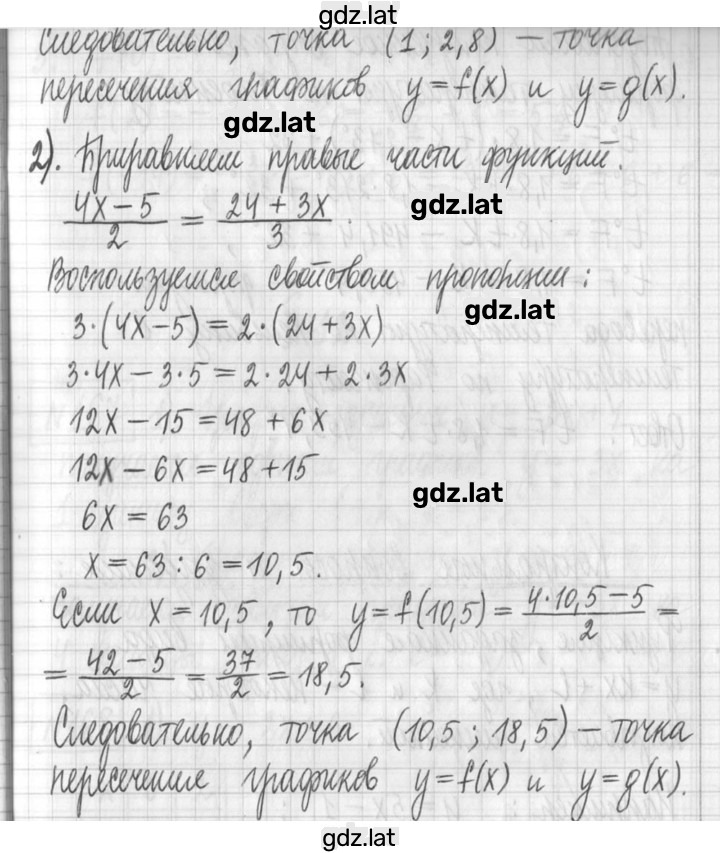 gdz.lat
Следовательно, точка (1; 2,8) – точка
пересечения графиков y=f(x) и y=g(x).
gdz.lat
2). Приравняем правые части функций:
gdz.lat
(4x – 5)/2 = (24 + 3x)/3
Воспользуемся свойством пропорции:
gdz.lat
3·(4x–5)=2·(24+3x)
3·4x – 3·5 = 2·24 + 2·3x
12x – 15 = 48 + 6x
12x – 6x = 48 + 15
gdz.lat
6x = 63
x = 63 : 6 = 10,5.
Если x = 10,5, то y = f(10,5) = (4·10,5 – 5)/2 =
= (42 – 5)/2 = 37/2 = 18,5.
Следовательно, точка (10,5 ; 18,5) – точка
пересечения графиков y=f(x) и y=g(x).
gdz.lat